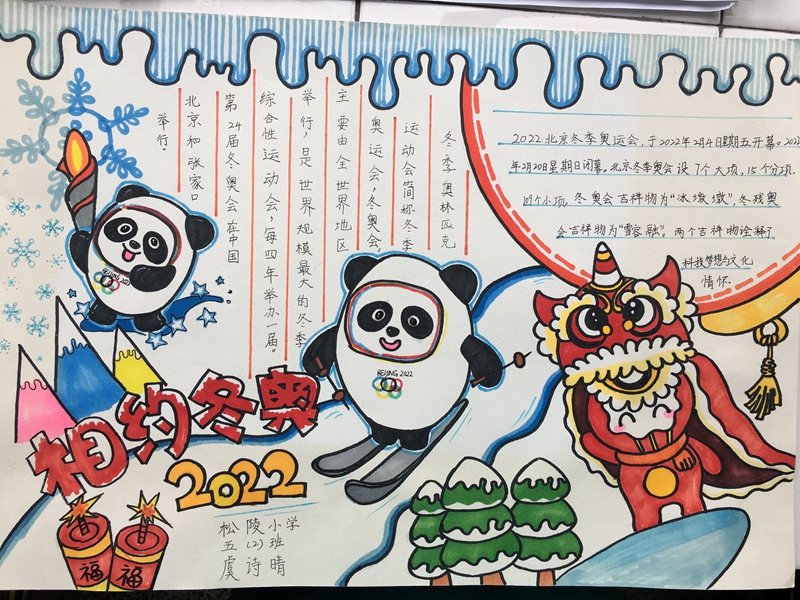 冬季奥林匹克
运动会简称冬季
奥运会,冬奥会
主要由全世界地区
举行,是世界规模最大的冬季
综合性运动会,每四年举办一届。
第24届冬奥会在中国
北京和张家口
举行.
2022北京冬季奥运会,于2022年2月4日星期五开幕.2022
年2月20日星期日闭幕.北京冬季奥会设7个大项,15个分项,
109个小项.冬奥会吉祥物为“冰墩墩”,冬残奥
会吉祥物为“雪容融”.两个吉祥物诠释了
科技梦想与文化
情怀.
BEIJING 2022
BEIJING 2022
相约冬奥
2022
福
福
松陵小学
五(2)班
虞诗晴